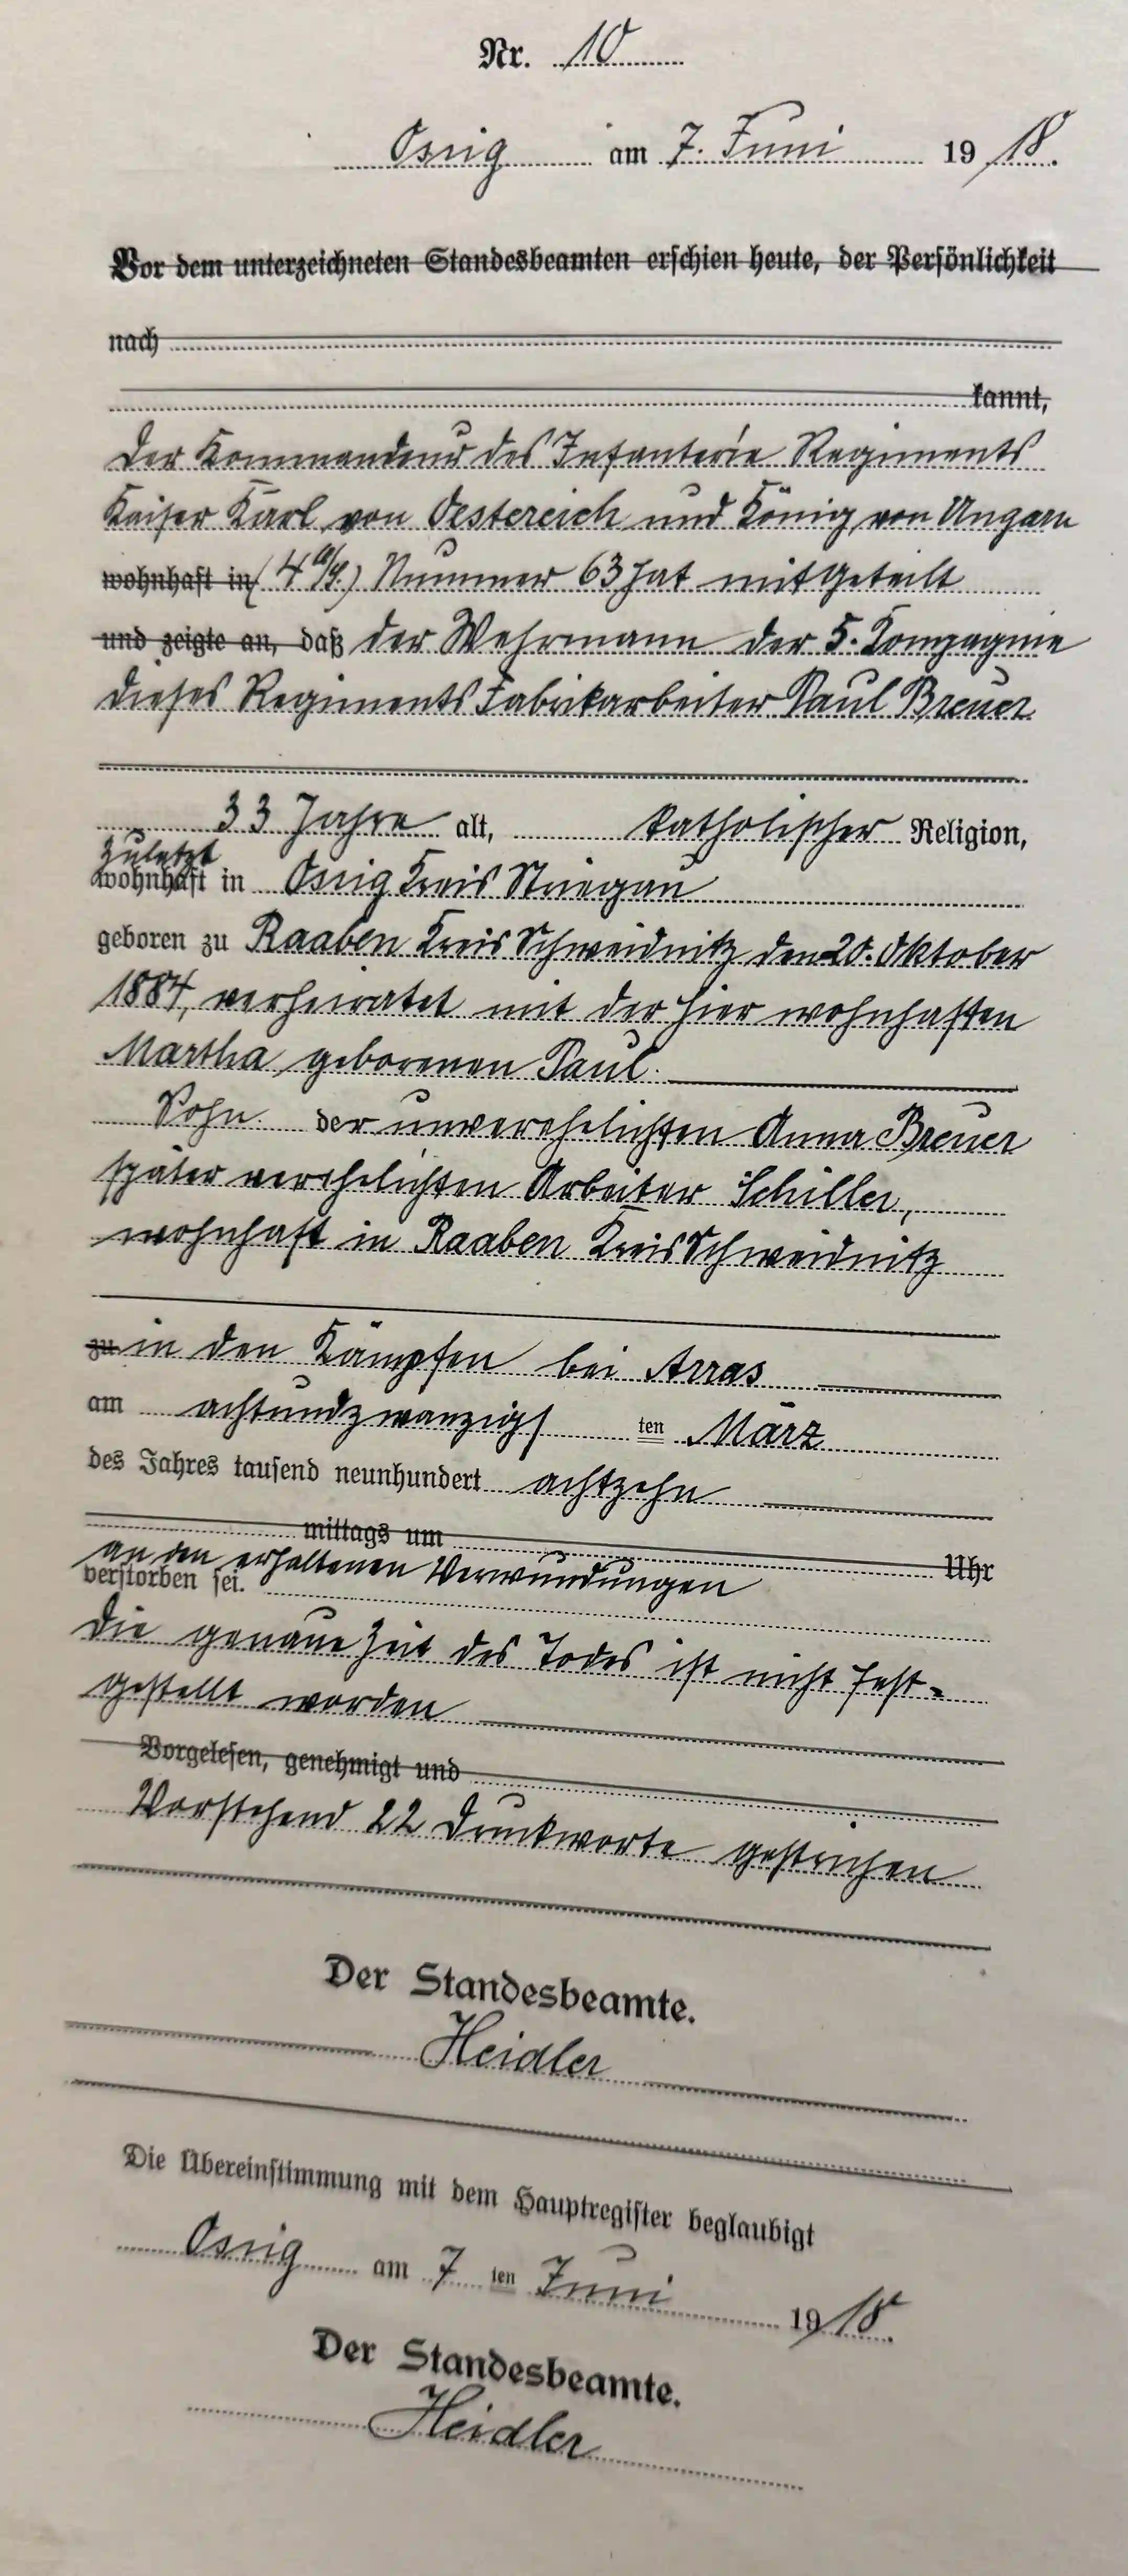 Nr. 10
Ossig am 7. Juni 19 18.
Vor dem unterzeichneten Standesbeamten erschien heute, der Persönlichkeit
nach
kannt,
Der Kommandeur des Infanterie Regiments
Kaiser Karl von Oestereich und König von Ungarn
wohnhaft in (4 o/s.) Nummer 63 hat mitgeteilt
und zeigte an, daß der Wehrmann der 5. Kompagnie
dieses Regiments Fabrikarbeiter Paul Breuer
33 Jahre alt, katholischer Religion,
zuletzt
wohnhaft in Ossig Kreis Striegau
geboren zu Raaben Kreis Schweidnitz den 20. Oktober
1884, verheiratet mit der hier wohnhaften
Martha geborenen Paul.
Sohn der unverehelichten Anna Breuer
später verehelichten Arbeiter Schiller,
wohnhaft in Raaben Kreis Schweidnitz
zu in den Kämpfen bei Arras
am achtundzwanzigs ten März
des Jahres tausend neunhundert achtzehn
mittags um Uhr
an den erhaltenen Verwundungen
verstorben sei.
Die genaue Zeit des Todes ist nicht fest-
gestellt worden
Vorgelesen, genehmigt und
Vorstehend 22 Druckworte gestrichen
Der Standesbeamte.
Heidler
Die Übereinstimmung mit dem Hauptregister beglaubigt
Ossig am 7 ten Juni 19 18.
Der Standesbeamte.
Heidler